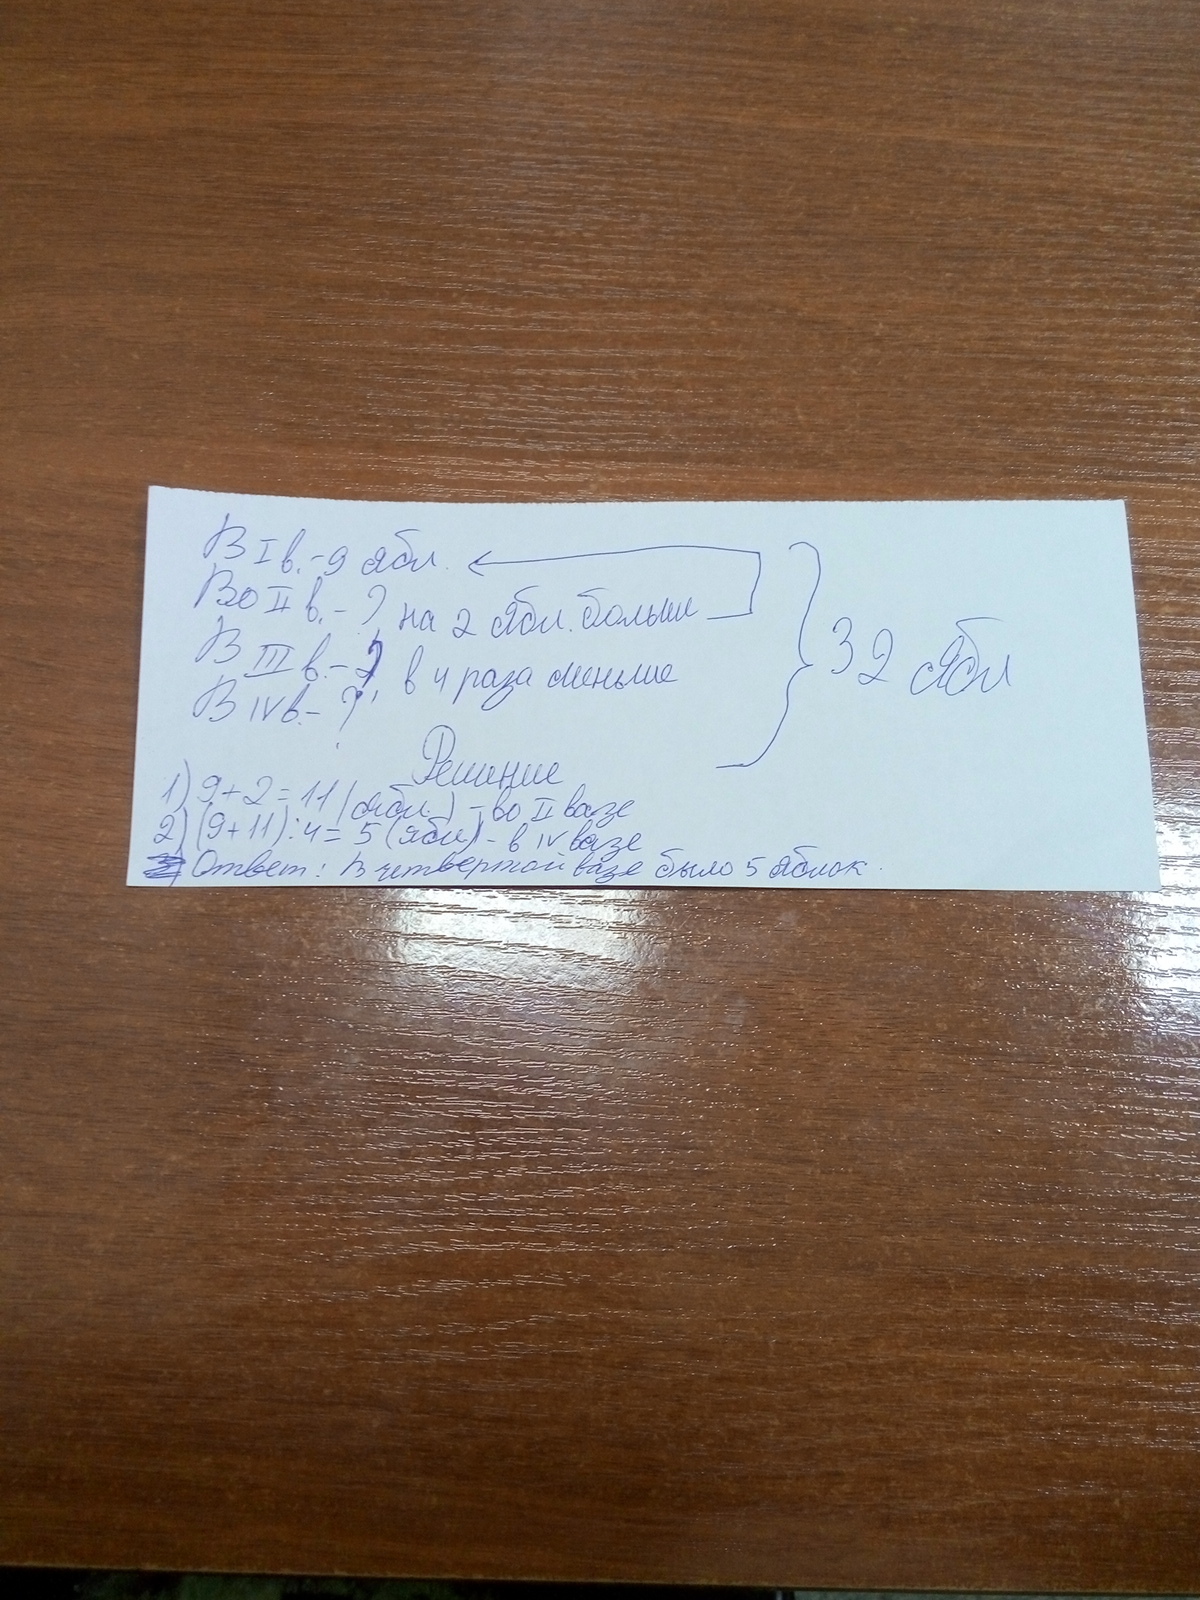 В I в. - 9 ябл.
Во II в. - ?, на 2 ябл. больше
В III в. - ?, в 4 раза меньше
В IV в. - ?
32 ябл
Решение
1) 9+2=11 (ябл.) - во II вазе
2) (9+11):4=5 (ябл) - в IV вазе
Ответ: В четвертой вазе было 5 яблок.